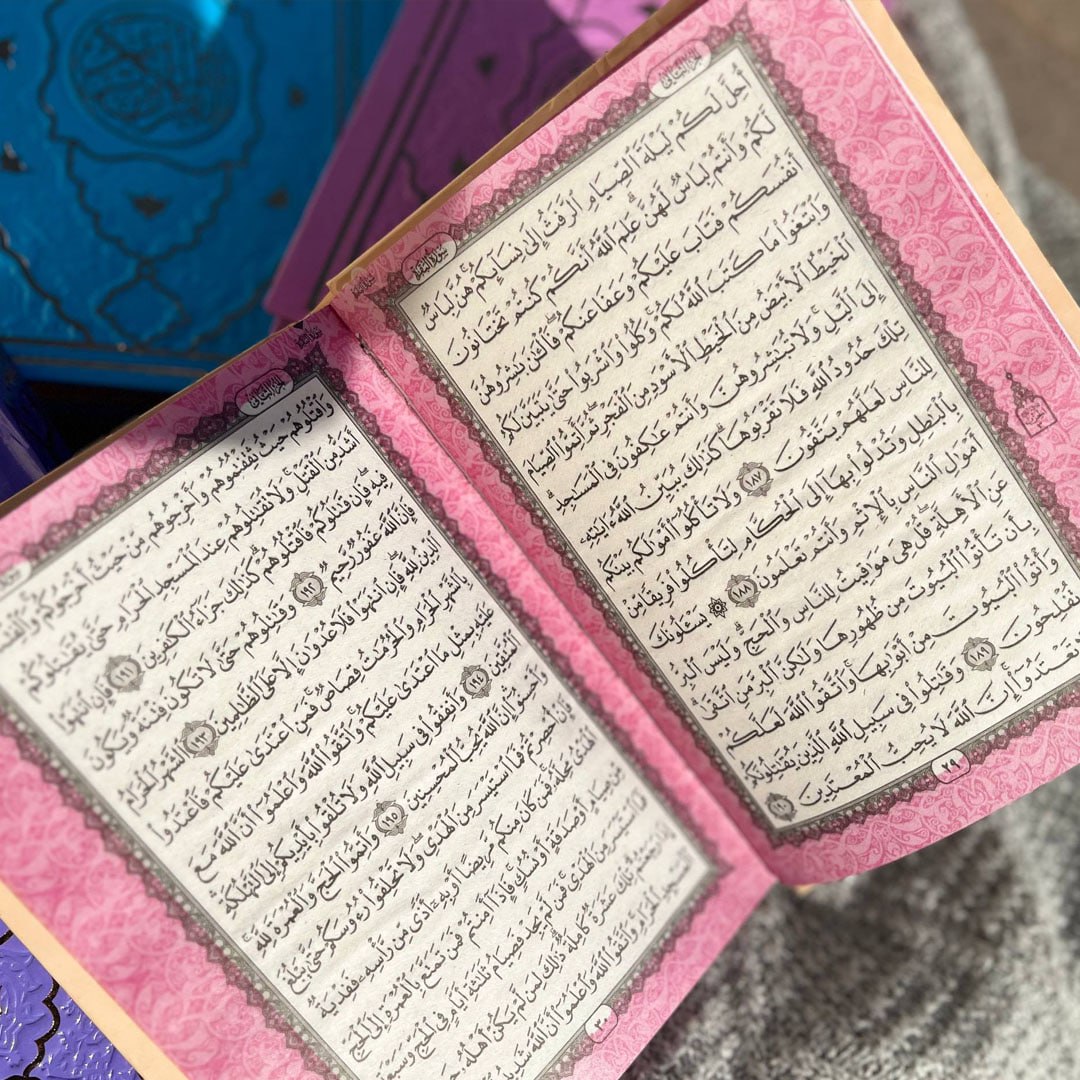 الجزء الثاني
سورة البقرة
أُحِلَّ لَكُمْ لَيْلَةَ ٱلصِّيَامِ ٱلرَّفَثُ إِلَىٰ نِسَآئِكُمْ ۚ هُنَّ لِبَاسٌ
لَّكُمْ وَأَنتُمْ لِبَاسٌ لَّهُنَّ ۗ عَلِمَ ٱللَّهُ أَنَّكُمْ كُنتُمْ تَخْتَانُونَ
أَنفُسَكُمْ فَتَابَ عَلَيْكُمْ وَعَفَا عَنكُمْ ۖ فَٱلْـَٰٔنَ بَـٰشِرُوهُنَّ
وَٱبْتَغُوا۟ مَا كَتَبَ ٱللَّهُ لَكُمْ ۚ وَكُلُوا۟ وَٱشْرَبُوا۟ حَتَّىٰ يَتَبَيَّنَ لَكُمُ
ٱلْخَيْطُ ٱلْأَبْيَضُ مِنَ ٱلْخَيْطِ ٱلْأَسْوَدِ مِنَ ٱلْفَجْرِ ۖ ثُمَّ أَتِمُّوا۟ ٱلصِّيَامَ
إِلَى ٱلَّيْلِ ۚ وَلَا تُبَـٰشِرُوهُنَّ وَأَنتُمْ عَـٰكِفُونَ فِى ٱلْمَسَـٰجِدِ ۗ
تِلْكَ حُدُودُ ٱللَّهِ فَلَا تَقْرَبُوهَا ۗ كَذَٰلِكَ يُبَيِّنُ ٱللَّهُ ءَايَـٰتِهِۦ
لِلنَّاسِ لَعَلَّهُمْ يَتَّقُونَ ١٨٧ وَلَا تَأْكُلُوٓا۟ أَمْوَٰلَكُم بَيْنَكُم
بِٱلْبَـٰطِلِ وَتُدْلُوا۟ بِهَآ إِلَى ٱلْحُكَّامِ لِتَأْكُلُوا۟ فَرِيقًا مِّنْ
أَمْوَٰلِ ٱلنَّاسِ بِٱلْإِثْمِ وَأَنتُمْ تَعْلَمُونَ ١٨٨ ۞ يَسْـَٔلُونَكَ
عَنِ ٱلْأَهِلَّةِ ۖ قُلْ هِىَ مَوَٰقِيتُ لِلنَّاسِ وَٱلْحَجِّ ۗ وَلَيْسَ ٱلْبِرُّ
بِأَن تَأْتُوا۟ ٱلْبُيُوتَ مِن ظُهُورِهَا وَلَـٰكِنَّ ٱلْبِرَّ مَنِ ٱتَّقَىٰ ۗ
وَأْتُوا۟ ٱلْبُيُوتَ مِنْ أَبْوَٰبِهَا ۚ وَٱتَّقُوا۟ ٱللَّهَ لَعَلَّكُمْ
تُفْلِحُونَ ١٨٩ وَقَـٰتِلُوا۟ فِى سَبِيلِ ٱللَّهِ ٱلَّذِينَ يُقَـٰتِلُونَكُمْ
تَعْتَدُوٓا۟ ۚ إِنَّ ٱللَّهَ لَا يُحِبُّ ٱلْمُعْتَدِينَ ١٩٠
٢٩
الجزء الثاني
وَٱقْتُلُوهُمْ حَيْثُ ثَقِفْتُمُوهُمْ وَأَخْرِجُوهُم مِّنْ حَيْثُ أَخْرَجُوكُمْ ۚ
أَشَدُّ مِنَ ٱلْقَتْلِ ۚ وَلَا تُقَـٰتِلُوهُمْ عِندَ ٱلْمَسْجِدِ ٱلْحَرَامِ حَتَّىٰ يُقَـٰتِلُوكُمْ
فِيهِ ۖ فَإِن قَـٰتَلُوكُمْ فَٱقْتُلُوهُمْ ۗ كَذَٰلِكَ جَزَآءُ ٱلْكَـٰفِرِينَ ١٩١ فَإِنِ ٱنتَهَوْا۟
فَإِنَّ ٱللَّهَ غَفُورٌ رَّحِيمٌ ١٩٢ وَقَـٰتِلُوهُمْ حَتَّىٰ لَا تَكُونَ فِتْنَةٌ وَيَكُونَ
ٱلدِّينُ لِلَّهِ ۖ فَإِنِ ٱنتَهَوْا۟ فَلَا عُدْوَٰنَ إِلَّا عَلَى ٱلظَّـٰلِمِينَ ١٩٣ ٱلشَّهْرُ ٱلْحَرَامُ
بِٱلشَّهْرِ ٱلْحَرَامِ وَٱلْحُرُمَـٰتُ قِصَاصٌ ۚ فَمَنِ ٱعْتَدَىٰ عَلَيْكُمْ فَٱعْتَدُوا۟
عَلَيْهِ بِمِثْلِ مَا ٱعْتَدَىٰ عَلَيْكُمْ ۚ وَٱتَّقُوا۟ ٱللَّهَ وَٱعْلَمُوٓا۟ أَنَّ ٱللَّهَ مَعَ
ٱلْمُتَّقِينَ ١٩٤ وَأَنفِقُوا۟ فِى سَبِيلِ ٱللَّهِ وَلَا تُلْقُوا۟ بِأَيْدِيكُمْ إِلَى ٱلتَّهْلُكَةِ ۛ
وَأَحْسِنُوٓا۟ ۛ إِنَّ ٱللَّهَ يُحِبُّ ٱلْمُحْسِنِينَ ١٩٥ وَأَتِمُّوا۟ ٱلْحَجَّ وَٱلْعُمْرَةَ لِلَّهِ ۚ
فَإِنْ أُحْصِرْتُمْ فَمَا ٱسْتَيْسَرَ مِنَ ٱلْهَدْىِ ۖ وَلَا تَحْلِقُوا۟ رُءُوسَكُمْ حَتَّىٰ يَبْلُغَ
ٱلْهَدْىُ مَحِلَّهُۥ ۚ فَمَن كَانَ مِنكُم مَّرِيضًا أَوْ بِهِۦٓ أَذًى مِّن رَّأْسِهِۦ فَفِدْيَةٌ
مِّن صِيَامٍ أَوْ صَدَقَةٍ أَوْ نُسُكٍ ۚ فَإِذَآ أَمِنتُمْ فَمَن تَمَتَّعَ بِٱلْعُمْرَةِ إِلَى ٱلْحَجِّ
فَمَا ٱسْتَيْسَرَ مِنَ ٱلْهَدْىِ ۚ فَمَن لَّمْ يَجِدْ فَصِيَامُ ثَلَـٰثَةِ أَيَّامٍ فِى ٱلْحَجِّ وَسَبْعَةٍ
إِذَا رَجَعْتُمْ ۗ تِلْكَ عَشَرَةٌ كَامِلَةٌ ۗ ذَٰلِكَ لِمَن لَّمْ يَكُنْ أَهْلُهُۥ
ٱلْمَسْجِدِ ٱلْحَرَامِ ۚ وَٱتَّقُوا۟ ٱللَّهَ وَٱعْلَمُوٓا۟ أَنَّ ٱللَّهَ شَدِيدُ
٣٠